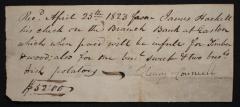 Rec'd April 25th 1823 from James Hackett
his check on the Branch Bank at Easton
which when paid will be in full for Timber
& wood; also for one bu: sweet & two bus
Irish potatoes
Henry
$52.00